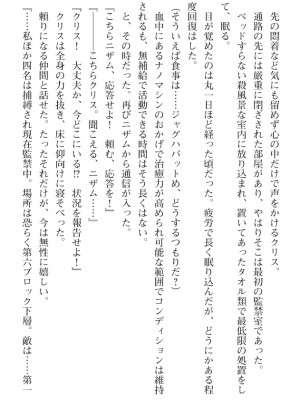 先の悶着など気にも留めず心の中だけで声をかけるクリス。
通路の先には厳重に閉ざされた部屋があり、やはりそこは最初の監禁室であった。
ベッドすらない殺風景な室内に放り込まれ、置いてあったタオル類で最低限の処置をし
て、眠る。
目が覚めたのは丸一日ほど経った頃だった。疲労で長く眠り込んだが、とにかくある程
度回復はした。
（そういえば食事は……ジャグハバットめ、どうするつもりだ？）
血中にあるナノマシンのおかげで治癒力が高められ可能な範囲でコンディションは維持
されるも、無補給で活動できる時間はそう長くはない。
と、その時だった。再びニザムから通信が入った。
『こちらニザム、応答せよ！　頼む、応答を！』
「……こちらクリス。聞こえる、ニザム……」
『クリス！　大丈夫か、今どこにいる!?　状況を報告せよ！』
クリスは全身の力を抜き、床に仰向けに寝そべった。
頼りになる仲間と話せた。たったそれだけが、今は無性に嬉しい。
「……私ほか四名は捕縛され現在監禁中。場所は恐らく第六ブロック下層。敵は……第一